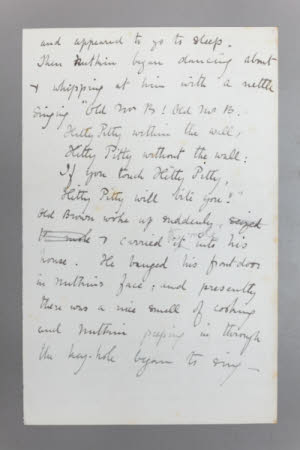 and appeared to go to sleep.
Then Nutkin began dancing about
& whipping at him with a nettle
singing "Old Mr B! Old Mr B.
Hitty Pitty within the wall,
Hitty Pitty without the wall:
If you touch Hitty Pitty,
Hitty Pitty will bite you!"
Old Brown woke up suddenly,
& carried it into his
house. He banged his front door
in Nutkins face; and presently
there was a nice smell of cooking
and Nutkin peeping in through
the key-hole began to sing—